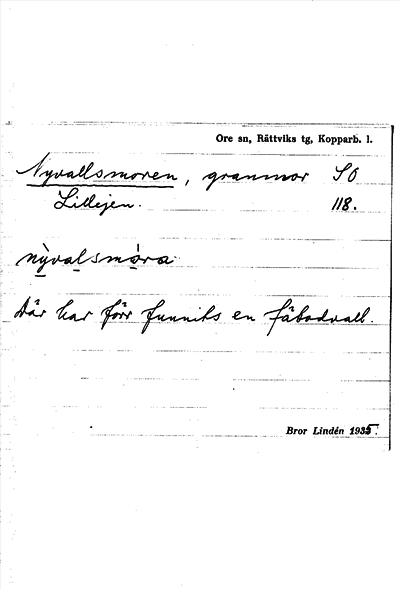 Ore sn, Rättviks tg, Kopparb. l.
Nyvallsmoren, granmor SO
Lillejen. 118.
nỳvalsmòra
Där har förr funnits en fäbodvall.
Bror Lindén 1935.